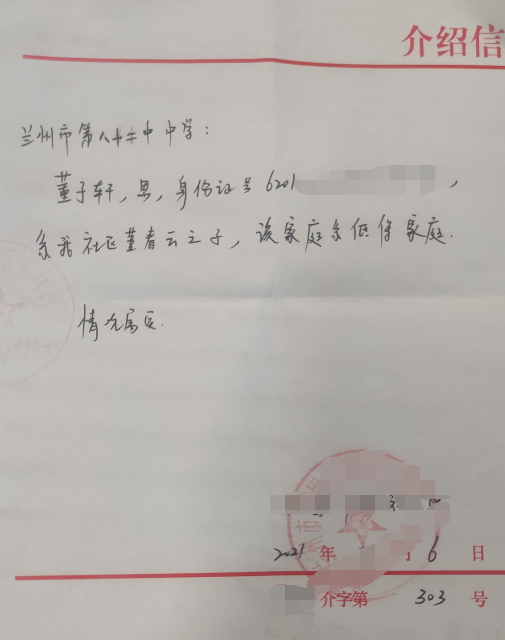 介绍信
兰州市第八十二中学:
董子轩,男,身份证号6201
系我社区董春云之子,该家庭系低保家庭.
情况属实.
2021年 6日
介字第 303 号